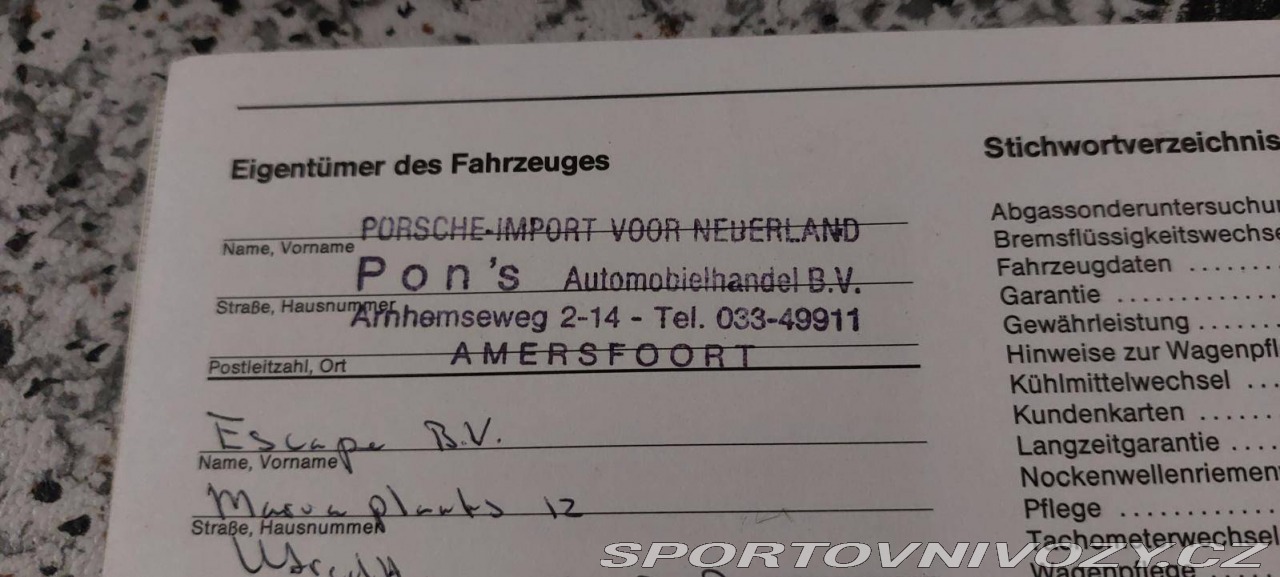 Eigentümer des Fahrzeuges
PORSCHE-IMPORT VOOR NEDERLAND
Name, Vorname
Pon's Automobielhandel B.V.
Straße, Hausnummer
Arnhemseweg 2-14 - Tel. 033-49911
AMERSFOORT
Postleitzahl, Ort
Escape B.V.
Name, Vorname
12
Straße, Hausnummer
Stichwortverzeichnis
Abgassonderuntersuchu
Bremsflüssigkeitswechse
Fahrzeugdaten ........
Garantie ..............
Gewährleistung .......
Hinweise zur Wagenpfl
Kühlmittelwechsel ...
Kundenkarten ......
Langzeitgarantie ....
Nockenwellenriemen
Pflege ............
Tachometerwechsel
Wagenpflege
SPORTOVNIVOZY.CZ